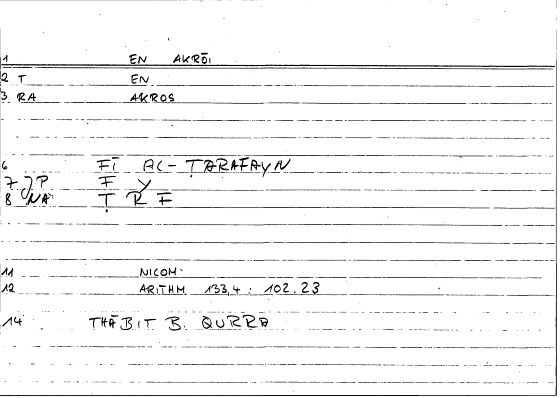 1 EN AKRŌI
2 T EN
3 RA AKROS
6 FĪ AL-ṬARAFAYN
7 JP F Y
8 NA Ṭ R F
11 NICOM.
12 ARITHM 133,4 : 102.23
14 THĀBIT B. QURRA